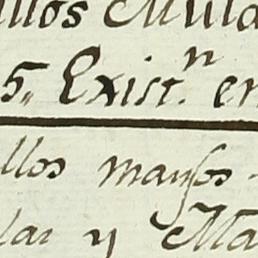 llos Mula
5,, Exist.n en
llos mansos
lar y Ma